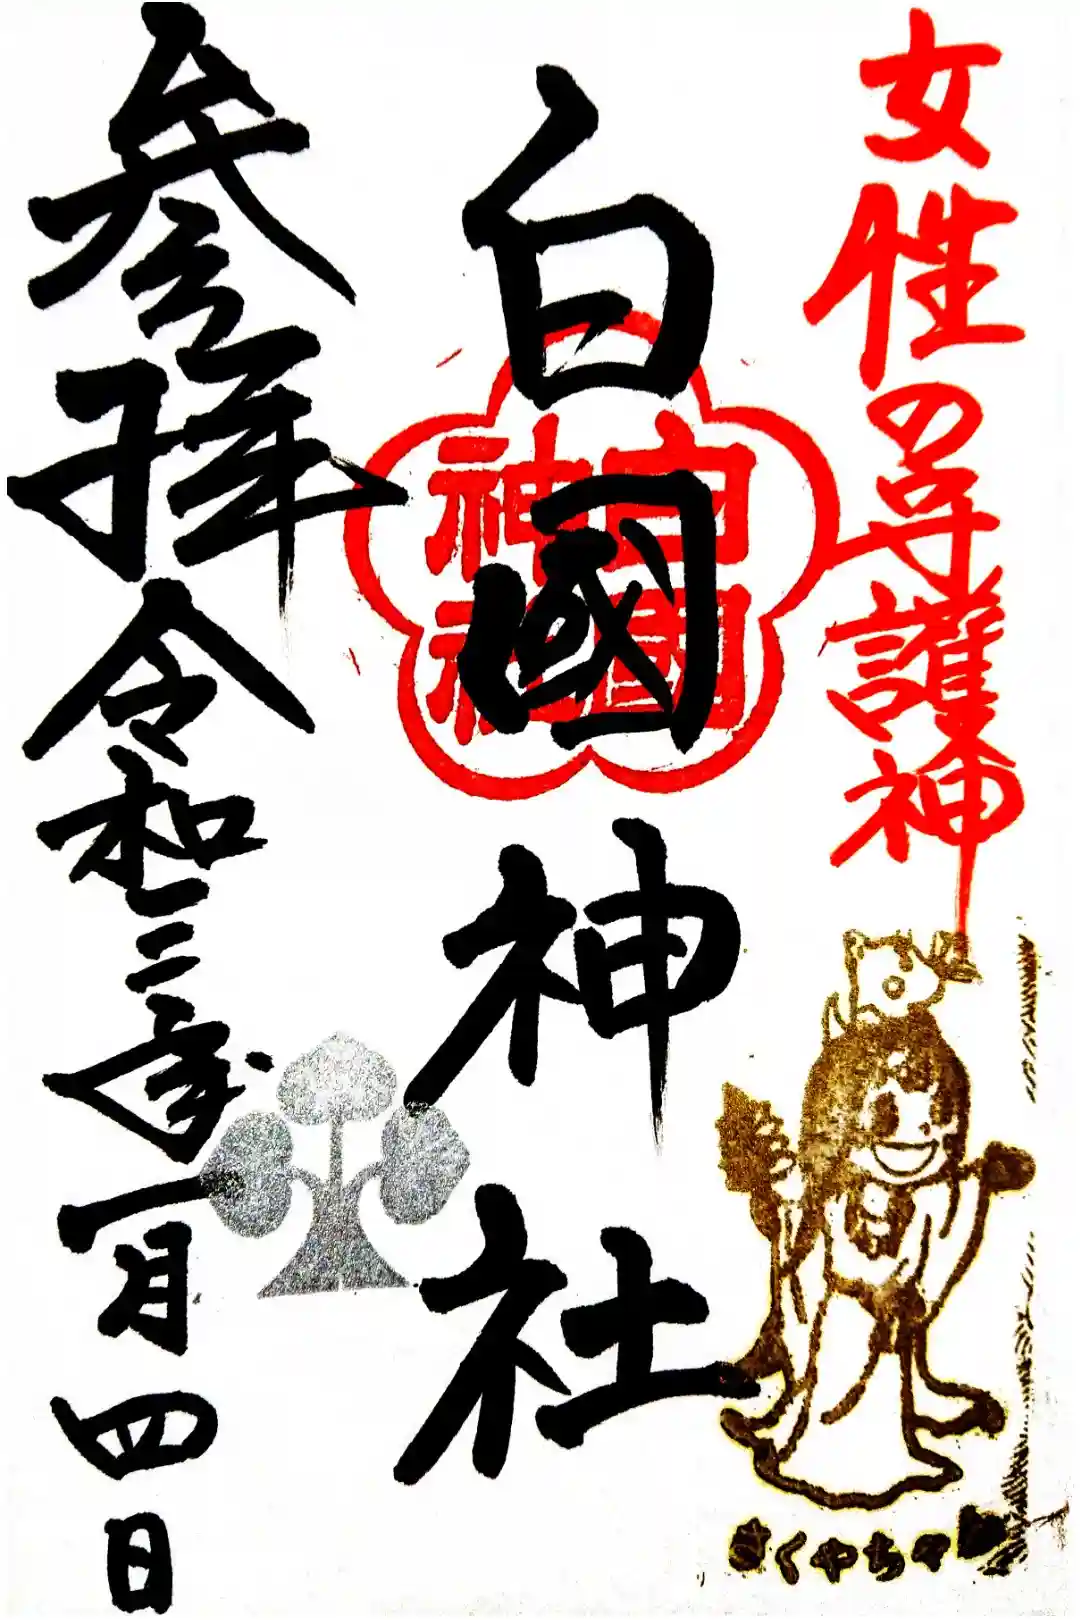 女性の守護神
白國神社
白國
神社
参拝令和三年一月四日
さくやちゃん